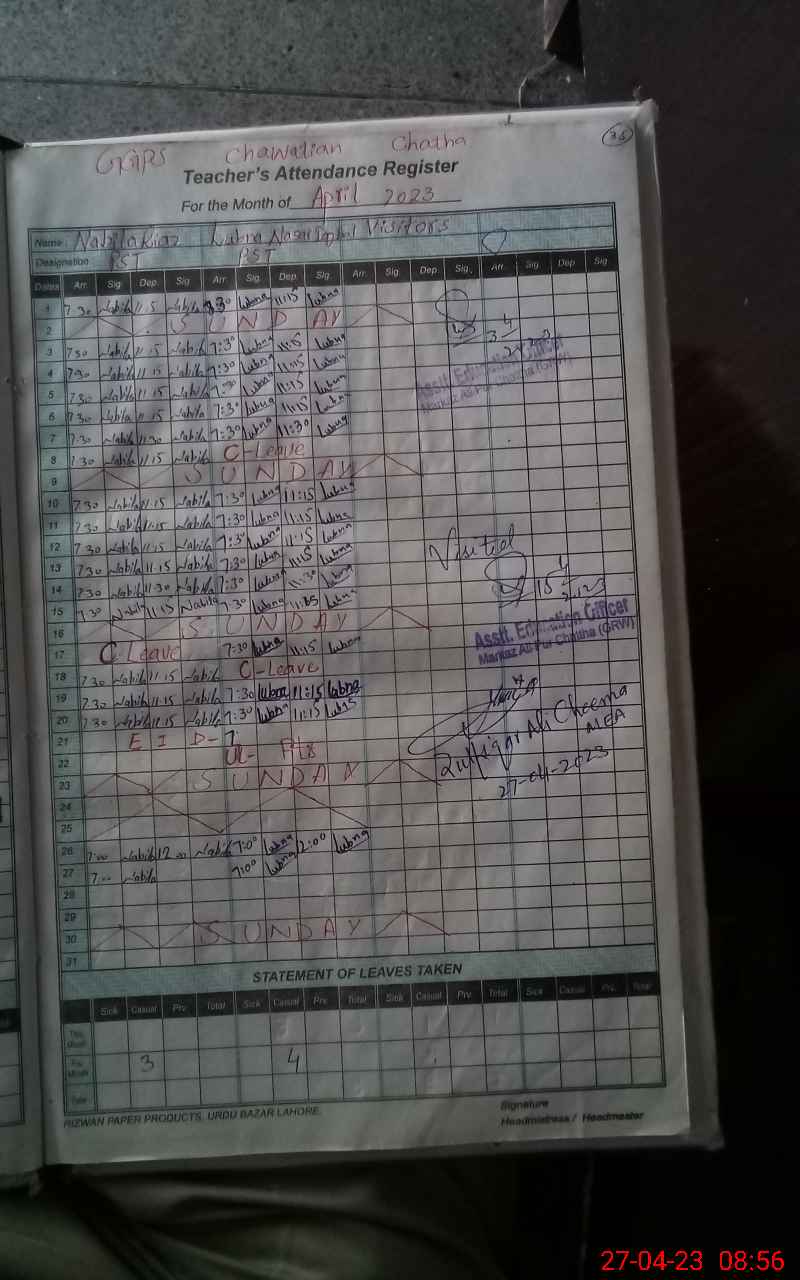 36
GGPS Chawalian Chatha
Teacher's Attendance Register
For the Month of April 2023
Name: Nabila Riaz Lubna Nazir Visitors
Designation PST PST
Dates Arr. Sig. Dep. Sig. Arr. Sig. Dep. Sig. Arr. Sig. Dep. Sig. Arr. Sig. Dep. Sig.
1 7:30 Nabila 11:15 Nabila 7:30 Lubna 11:15 Lubna
2 SUNDAY
3 7:30 Nabila 11:15 Nabila 7:30 Lubna 11:15 Lubna
4 7:30 Nabila 11:15 Nabila 7:30 Lubna 11:15 Lubna
5 7:30 Nabila 11:15 Nabila 7:30 Lubna 11:15 Lubna
Asstt. Education Officer
6 7:30 Nabila 11:15 Nabila 7:30 Lubna 11:15 Lubna
7 7:30 Nabila 11:30 Nabila 7:30 Lubna 11:30 Lubna
8 7:30 Nabila 11:15 Nabila C-Leave
9 SUNDAY
10 7:30 Nabila 11:15 Nabila 7:30 Lubna 11:15 Lubna
11 7:30 Nabila 11:15 Nabila 7:30 Lubna 11:15 Lubna
12 7:30 Nabila 11:15 Nabila 7:30 Lubna 11:15 Lubna
Visited
13 7:30 Nabila 11:15 Nabila 7:30 Lubna 11:15 Lubna
14 7:30 Nabila 11:30 Nabila 7:30 Lubna 11:30 Lubna
15 7:30 Nabila 11:15 Nabila 7:30 Lubna Lubna
16 SUNDAY
Asstt. Education Officer
Markaz Ali Pur Chattha (GRW)
17 C-Leave 7:30 Lubna 11:15 Lubna
18 7:30 Nabila 11:15 Nabila C-Leave
19 7:30 Nabila 11:15 Nabila 7:30 Lubna 11:15 Lubna
20 7:30 Nabila 11:15 Nabila 7:30 Lubna 11:15 Lubna
21 EID-
22
Zulfiqar Ali Cheema
MEA
27-04-2023
23 SUNDAY
24
25
26 7:00 Nabila 12:00 Nabila 7:00 Lubna 12:00 Lubna
27 7:00 Nabila 7:00 Lubna
28
29
30 SUNDAY
31
STATEMENT OF LEAVES TAKEN
Sick Casual Prv. Total Sick Casual Prv. Total Sick Casual Prv. Total Sick Casual Prv. Total
3 4
Total
RIZWAN PAPER PRODUCTS, URDU BAZAR LAHORE.
Signature
Headmistress / Headmaster
27-04-23 08:56